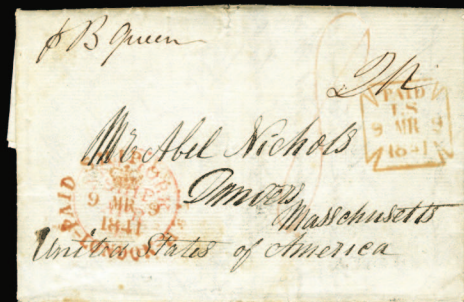 p B Queen
Pd
PAID
LS
9 MR 9
1841
Mr Abel Nichols
Danvers
Massachusetts
United States of America
PAID
9 MR 9
1841
LONDON